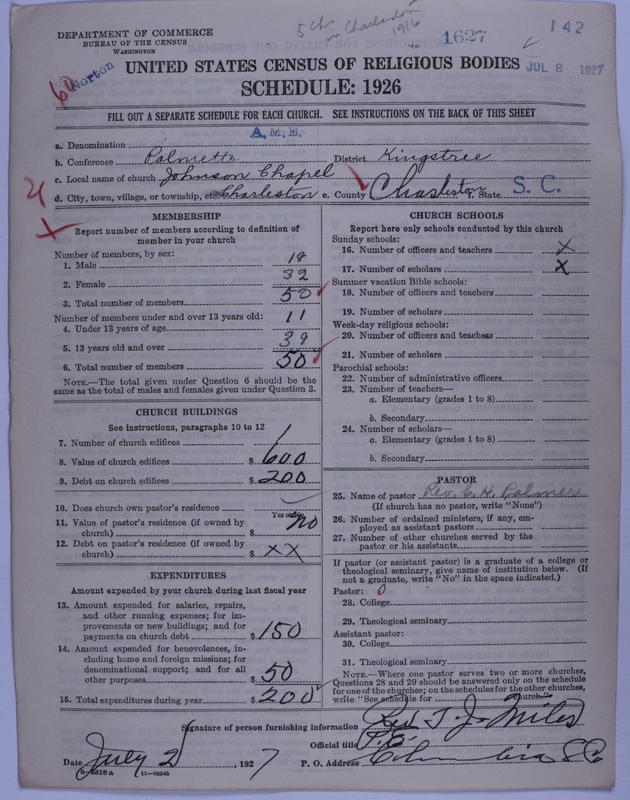 5 chs in Charleston 1916
DEPARTMENT OF COMMERCE
BUREAU OF THE CENSUS
WASHINGTON
1627
142
60
Norton
UNITED STATES CENSUS OF RELIGIOUS BODIES
JUL 8 1927
SCHEDULE: 1926
FILL OUT A SEPARATE SCHEDULE FOR EACH CHURCH. SEE INSTRUCTIONS ON THE BACK OF THIS SHEET
a. Denomination A.M.E.
b. Conference Palmetto District Kingstree
c. Local name of church Johnson Chapel
d. City, town, village, or township, etc Charleston e. County Charleston f. State S. C.
MEMBERSHIP
Report number of members according to definition of
member in your church
Number of members, by sex:
1. Male 18
2. Female 32
3. Total number of members 50
Number of members under and over 13 years old:
4. Under 13 years of age 11
5. 13 years old and over 39
6. Total number of members 50
NOTE.—The total given under Question 6 should be
same as the total of males and females given under Question 3.
CHURCH BUILDINGS
See instructions, paragraphs 10 to 12
7. Number of church edifices 1
8. Value of church edifices $ 600
9. Debt on church edifices $ 200
10. Does church own pastor's residence
Yes or No
11. Value of pastor's residence (if owned by
church) $ no
12. Debt on pastor's residence (if owned by
church) $ xx
EXPENDITURES
Amount expended by your church during last fiscal year
13. Amount expended for salaries, repairs,
and other running expenses; for im-
provements or new buildings; and for
payments on church debt $ 150
14. Amount expended for benevolences, in-
cluding home and foreign missions; for
denominational support; and for all
other purposes $ 50
15. Total expenditures during year $ 200
CHURCH SCHOOLS
Report here only schools conducted by this church
Sunday schools:
16. Number of officers and teachers x
17. Number of scholars x
Summer vacation Bible schools:
18. Number of officers and teachers
19. Number of scholars
Week-day religious schools:
20. Number of officers and teachers
21. Number of scholars
Parochial schools:
22. Number of administrative officers
23. Number of teachers—
a. Elementary (grades 1 to 8)
b. Secondary
24. Number of scholars—
a. Elementary (grades 1 to 8)
b. Secondary
PASTOR
25. Name of pastor Rev. C. H. Palmer
(If church has no pastor, write "None")
26. Number of ordained ministers, if any, em-
ployed as assistant pastors
27. Number of other churches served by the
pastor or his assistants
If pastor (or assistant pastor) is a graduate of a college or
theological seminary, give name of institution below. (If
not a graduate, write "No" in the space indicated.)
Pastor: 0
28. College
29. Theological seminary
Assistant pastor:
30. College
31. Theological seminary
NOTE.—Where one pastor serves two or more churches,
Questions 28 and 29 should be answered only on the schedule
for one of the churches; on the schedules for the other churches,
write "See schedule for church."
Signature of person furnishing information Rev T. J. Miles
Official title P.E.
Date July 2, 1927 P. O. Address Columbia S.C.
8-5518a 11—0554b